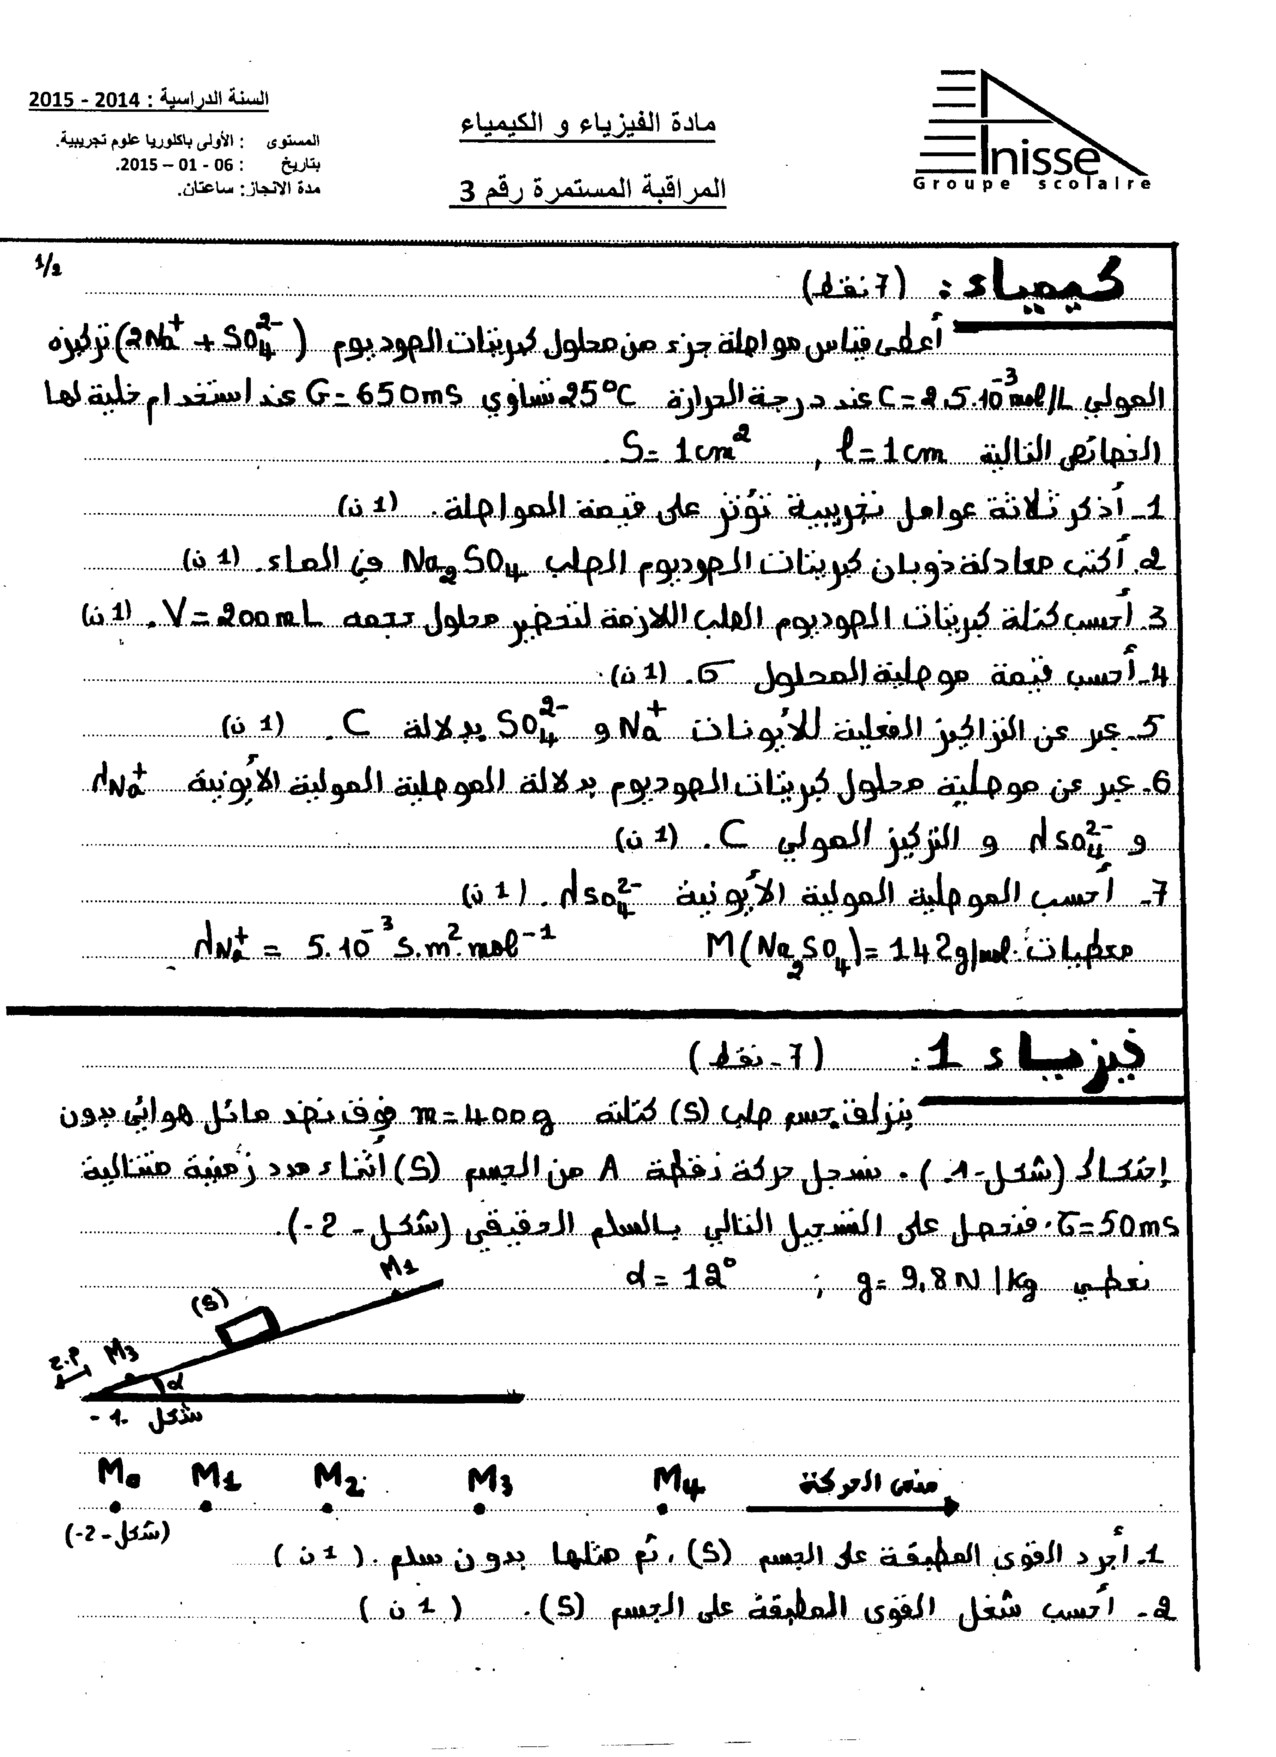 السنة الدراسية : 2014 - 2015
المستوى : الأولى باكلوريا علوم تجريبية.
بتاريخ : 06 - 01 – 2015.
مدة الانجاز: ساعتان.
مادة الفيزياء و الكيمياء
المراقبة المستمرة رقم 3
Anisse
Groupe scolaire
1/2
كيمياء : (7 نقط)
أعطى قياس مواصلة جزء من محلول كبريتات الصوديوم (2Na⁺ + SO₄²⁻) تركيزه
المولي C = 2,5.10⁻³ mol/L عند درجة الحرارة 25°C تساوي G = 650mS عند استخدام خلية لها
الخصائص التالية S = 1cm² , l = 1cm .
1- أذكر ثلاثة عوامل تجريبية تؤثر على قيمة المواصلة. (1ن)
2. أكتب معادلة ذوبان كبريتات الصوديوم الصلب Na₂SO₄ في الماء. (1ن)
3. أحسب كتلة كبريتات الصوديوم الصلب اللازمة لتحضير محلول حجمه V = 200mL . (1ن)
4- أحسب قيمة موصلية المحلول σ. (1ن)
5- عبر عن التراكيز الفعلية للأيونات Na⁺ و SO₄²⁻ بدلالة C . (1ن)
6- عبر عن موصلية محلول كبريتات الصوديوم بدلالة الموصلية المولية الأيونية λNa⁺
و λSO₄²⁻ و التركيز المولي C . (1ن)
7- أحسب الموصلية المولية الأيونية λSO₄²⁻ . (1ن)
معطيات: M(Na₂SO₄) = 142g/mol λNa⁺ = 5.10⁻³ S.m².mol⁻¹
فيزياء 1 : (7- نقط)
ينزلق جسم صلب (S) كتلته m = 400g فوق نضد مائل هوائي بدون
إحتكاك (شكل-1.) . نسجل حركة نقطة A من الجسم (S) أثناء مدد زمنية متتالية
τ = 50ms فنحصل على التسجيل التالي بالسلم الحقيقي (شكل - 2-).
نعطي g = 9,8N/kg ; α = 12°
M1
(S)
M3
α
شكل 1-
M₀ M1 M2 M3 M4 منحى الحركة
(شكل-2-)
1. أجرد القوى المطبقة على الجسم (S) ، ثم مثلها بدون سلم . (1ن)
2- أحسب شغل القوى المطبقة على الجسم (S). (1ن)